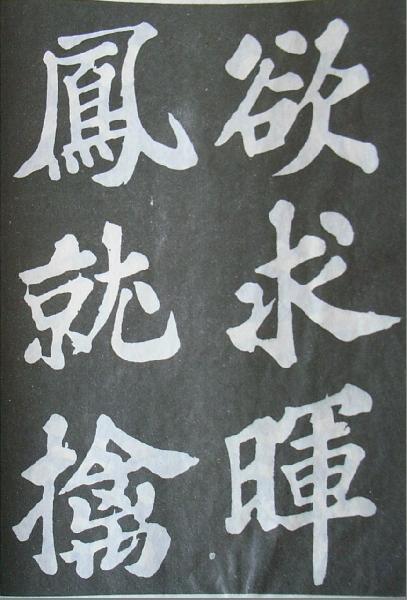 欲求暉
鳳就擒